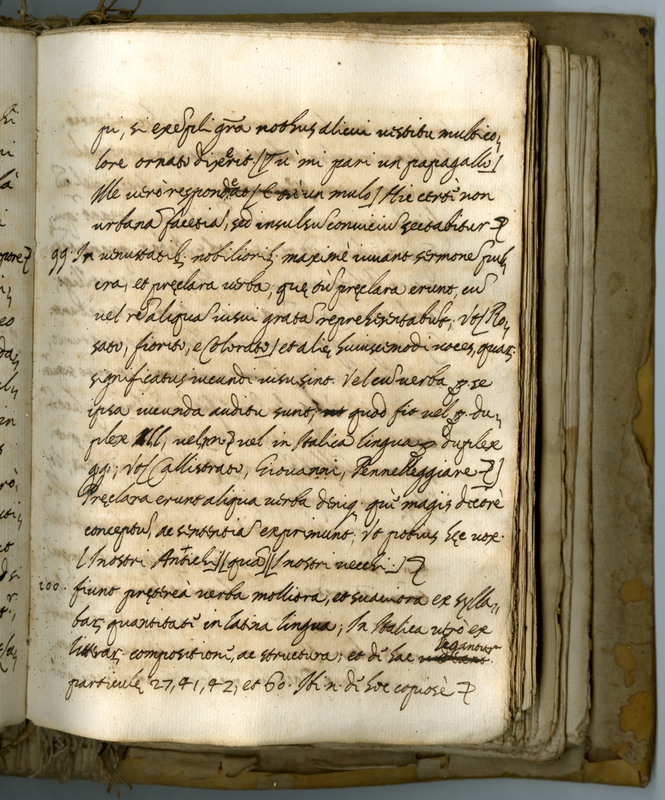 pi, si exēpli grā nothus alicui vestitu multico,
lore ornato dixerit. [Tù mi pari un papagallo]
Ille verò respondeat [E tù un mulo] Hic certè non
urbanā facetiā, sed insulsū conviciū sectabitur
99 In venustatib; nobiliorib; maximè iuvant sermone pul,
cra, et pręclara verba, quę tūc pręclara erunt, cū
vel rē aliquā visui gratā repręsentabūt, Vt [Ro,
sato, fiorito, e Colorato] et alię huiuscemodi voces, quar;
significatus iucundi visu sint. Vel cū verba p se
ipsa iucunda auditu sunt, quod fit vel p du,
plex ll, vel nn vel in Italica lingua p duplex
gg; Vt [Callistrato, Giovanni, Pennelleggiare]
Pręclara erunt aliqua verba deniq. quę magis decorè
conceptū, ac sententiā exprimunt, Vt potius hęc vox.
[I nostri Antichi] [quā] [I nostri vecchi.]
100. fiunt pręterea verba molliora, et suaviora ex sylla,
bar; quantitate in latina lingua; In Italica verò ex
litterar; compositione, ac structura; et de hac legantur
particulę 27, 41, 42, et 60. Ibi n. de hoc copiosè